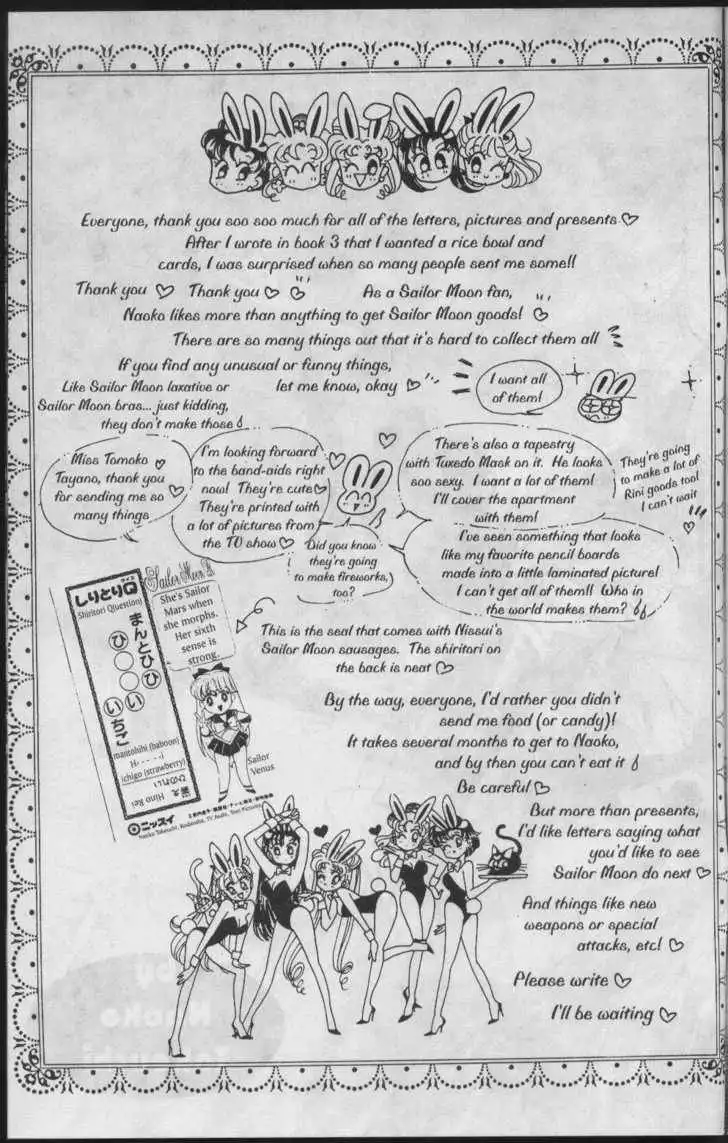 Everyone, thank you soo soo much for all of the letters, pictures and presents ♡
After I wrote in book 3 that I wanted a rice bowl and
cards, I was surprised when so many people sent me some!!
Thank you ♡ Thank you ♡ ♡
As a Sailor Moon fan,
Naoko likes more than anything to get Sailor Moon goods! ♡
There are so many things out that it's hard to collect them all
If you find any unusual or funny things,
let me know, okay ♡
Like Sailor Moon laxative or
Sailor Moon bras... just kidding,
they don't make those
I want all
of them!
Miss Tomoko ♡
Tayano, thank you
for sending me so ♡
many things
I'm looking forward
to the band-aids right
now! They're cute ♡
They're printed with
a lot of pictures from
the TV show ♡
Did you know
they're going
to make fireworks,
too?
There's also a tapestry
with Tuxedo Mask on it. He looks
soo sexy. I want a lot of them!
I'll cover the apartment
with them!
They're going
to make a lot of
Rini goods too!
I can't wait
♡
I've seen something that looks
like my favorite pencil boards
made into a little laminated picture!
I can't get all of them!! Who in
the world makes them?
しりとりQ
クイズ
Shiritori Q(uestion)
まんとひひ
ひ○○い
いちご
mantohihi (baboon)
H- - - -i
ichigo (strawberry)
火野レイ
Hino Rei
ひのれい
ニッスイ
Naoko Takeuchi, Kodansha, TV Asahi, Toei Pictures
Sailor Moon R
She's Sailor
Mars when
she morphs.
Her sixth
sense is
strong.
Sailor
Venus
This is the seal that comes with Nissui's
Sailor Moon sausages. The shiritori on
the back is neat ♡
By the way, everyone, I'd rather you didn't
send me food (or candy)!
It takes several months to get to Naoko,
and by then you can't eat it
Be careful ♡
But more than presents,
I'd like letters saying what
you'd like to see
Sailor Moon do next ♡
And things like new
weapons or special
attacks, etc! ♡
Please write ♡
I'll be waiting ♡